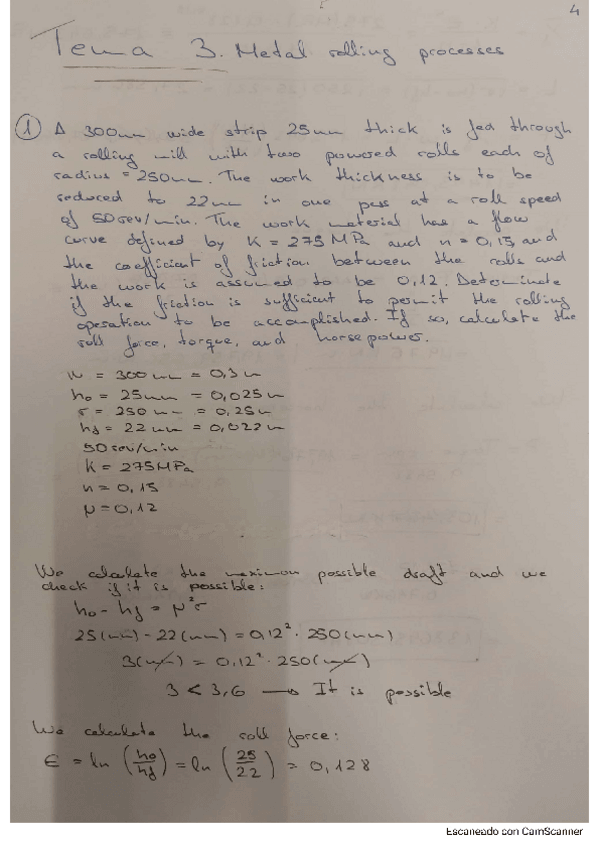 4
Tema 3. Metal rolling processes
① A 300mm wide strip 25mm thick is fed through
a rolling mill with two powered rolls each of
radius = 250mm. The work thickness is to be
reduced to 22mm in one pass at a roll speed
of 50 rev/min. The work material has a flow
curve defined by K = 275 MPa and n = 0,15, and
the coefficient of friction between the rolls and
the work is assumed to be 0,12. Determinate
if the friction is sufficient to permit the rolling
operation to be accomplished. If so, calculate the
roll force, torque, and horsepower.
w = 300mm = 0,3m
ho = 25mm = 0,025m
r = 250mm = 0,25m
hf = 22mm = 0,022m
50 rev/min
K = 275MPa
n = 0,15
μ = 0,12
We calculate the maximon possible draft and we
check if it is possible:
ho - hf = μ²r
25(mm) - 22(mm) = 0,12² · 250(mm)
3(mm) = 0,12² · 250(mm)
3 < 3,6 → It is possible
We calculate the roll force:
ϵ = ln (ho/hf) = ln (25/22) = 0,128
Escaneado con CamScanner